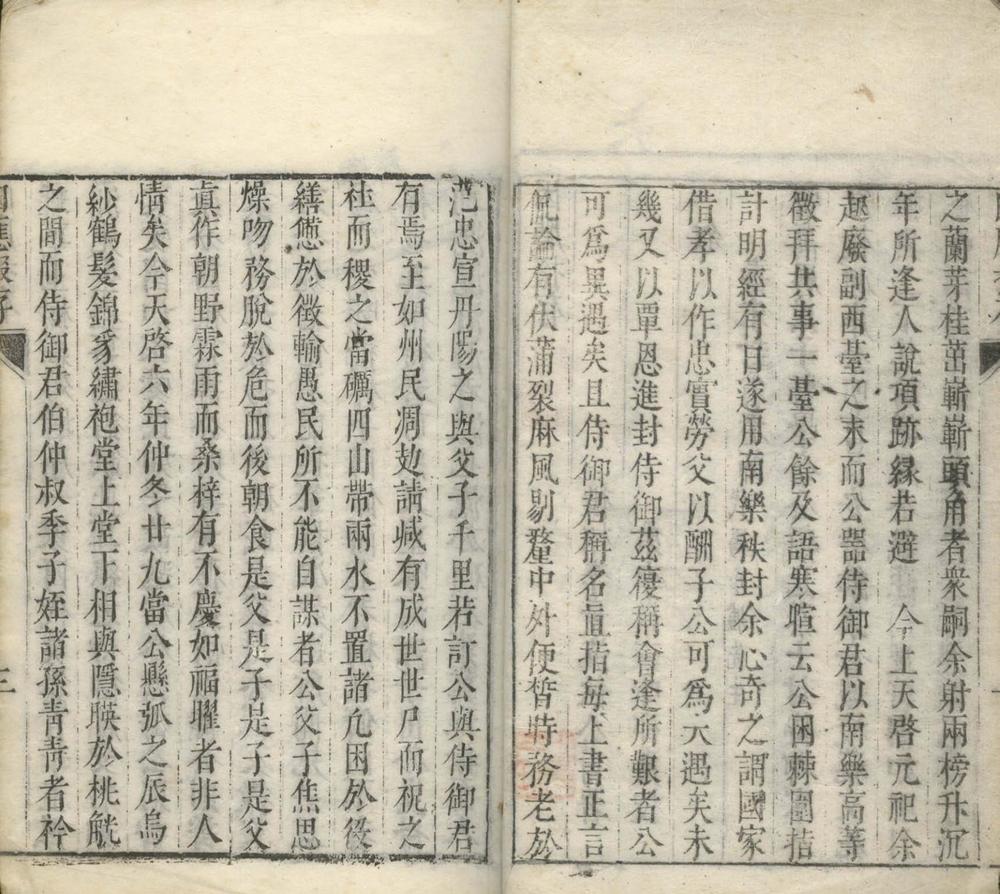 之蘭芽桂茁嶄嶄頭角者衆嗣余射兩榜升沉
年所逢人說項跡緣若避　今上天啓元祀余
起廢副西臺之末而公噐侍御君以南樂高等
徵拜共事一臺公餘及語寒暄云公困棘圍拮
計明經有日遂用南樂秩封余心奇之謂國家
借孝以作忠實勞父以酬子公可爲亢遇矣未
幾又以覃恩進封侍御茲復稱會逢所艱者公
可爲異遇矣且侍御君稱名直指每上書正言
侃論有伏蒲裂麻風剔釐中外便皆時務老於
范忠宣丹陽之與父子千里若訂公與侍御君
有焉至如州民凋攰請緘有成世世尸而祝之
社而稷之當礪四山帶兩水不置諸凡困於役
繕憊於徵輸愚民所不能自謀者公父子焦思
燥吻務脫於危而後朝食是父是子是子是父
眞作朝野霖雨而桑梓有不慶如福曜者非人
情矣今天啓六年仲冬廿九當公懸弧之辰烏
紗鶴髮錦豸繡袍堂上堂下相與隱暎於桃觥
之間而侍御君伯仲叔季子姪諸孫靑靑者衿
三